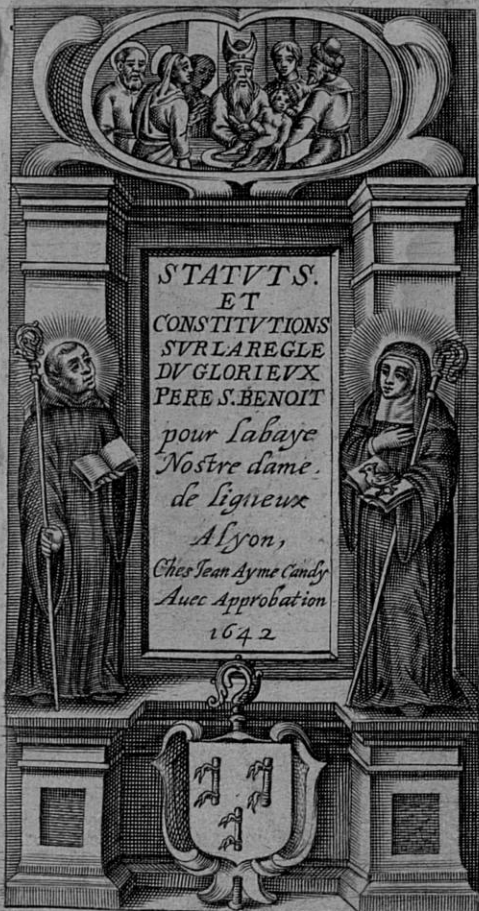 STATVTS.
ET
CONSTITVTIONS
SVR LA REGLE
DV GLORIEVX
PERE S. BENOIT
pour Labaye
Nostre dame.
de Ligueux
A Lyon,
Ches Jean Ayme Candy
Auec Approbation
1642